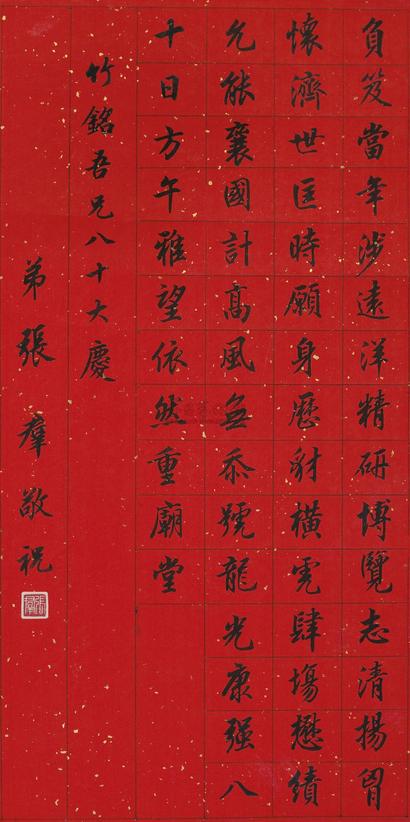 負笈當年涉遠洋精研博覽志清揚胷
懷濟世匡時願身歷豺橫虎肆場懋績
允能襄國計高風無忝號龍光康强八
十日方午雅望依然重廟堂
竹銘吾兄八十大慶
弟張羣敬祝